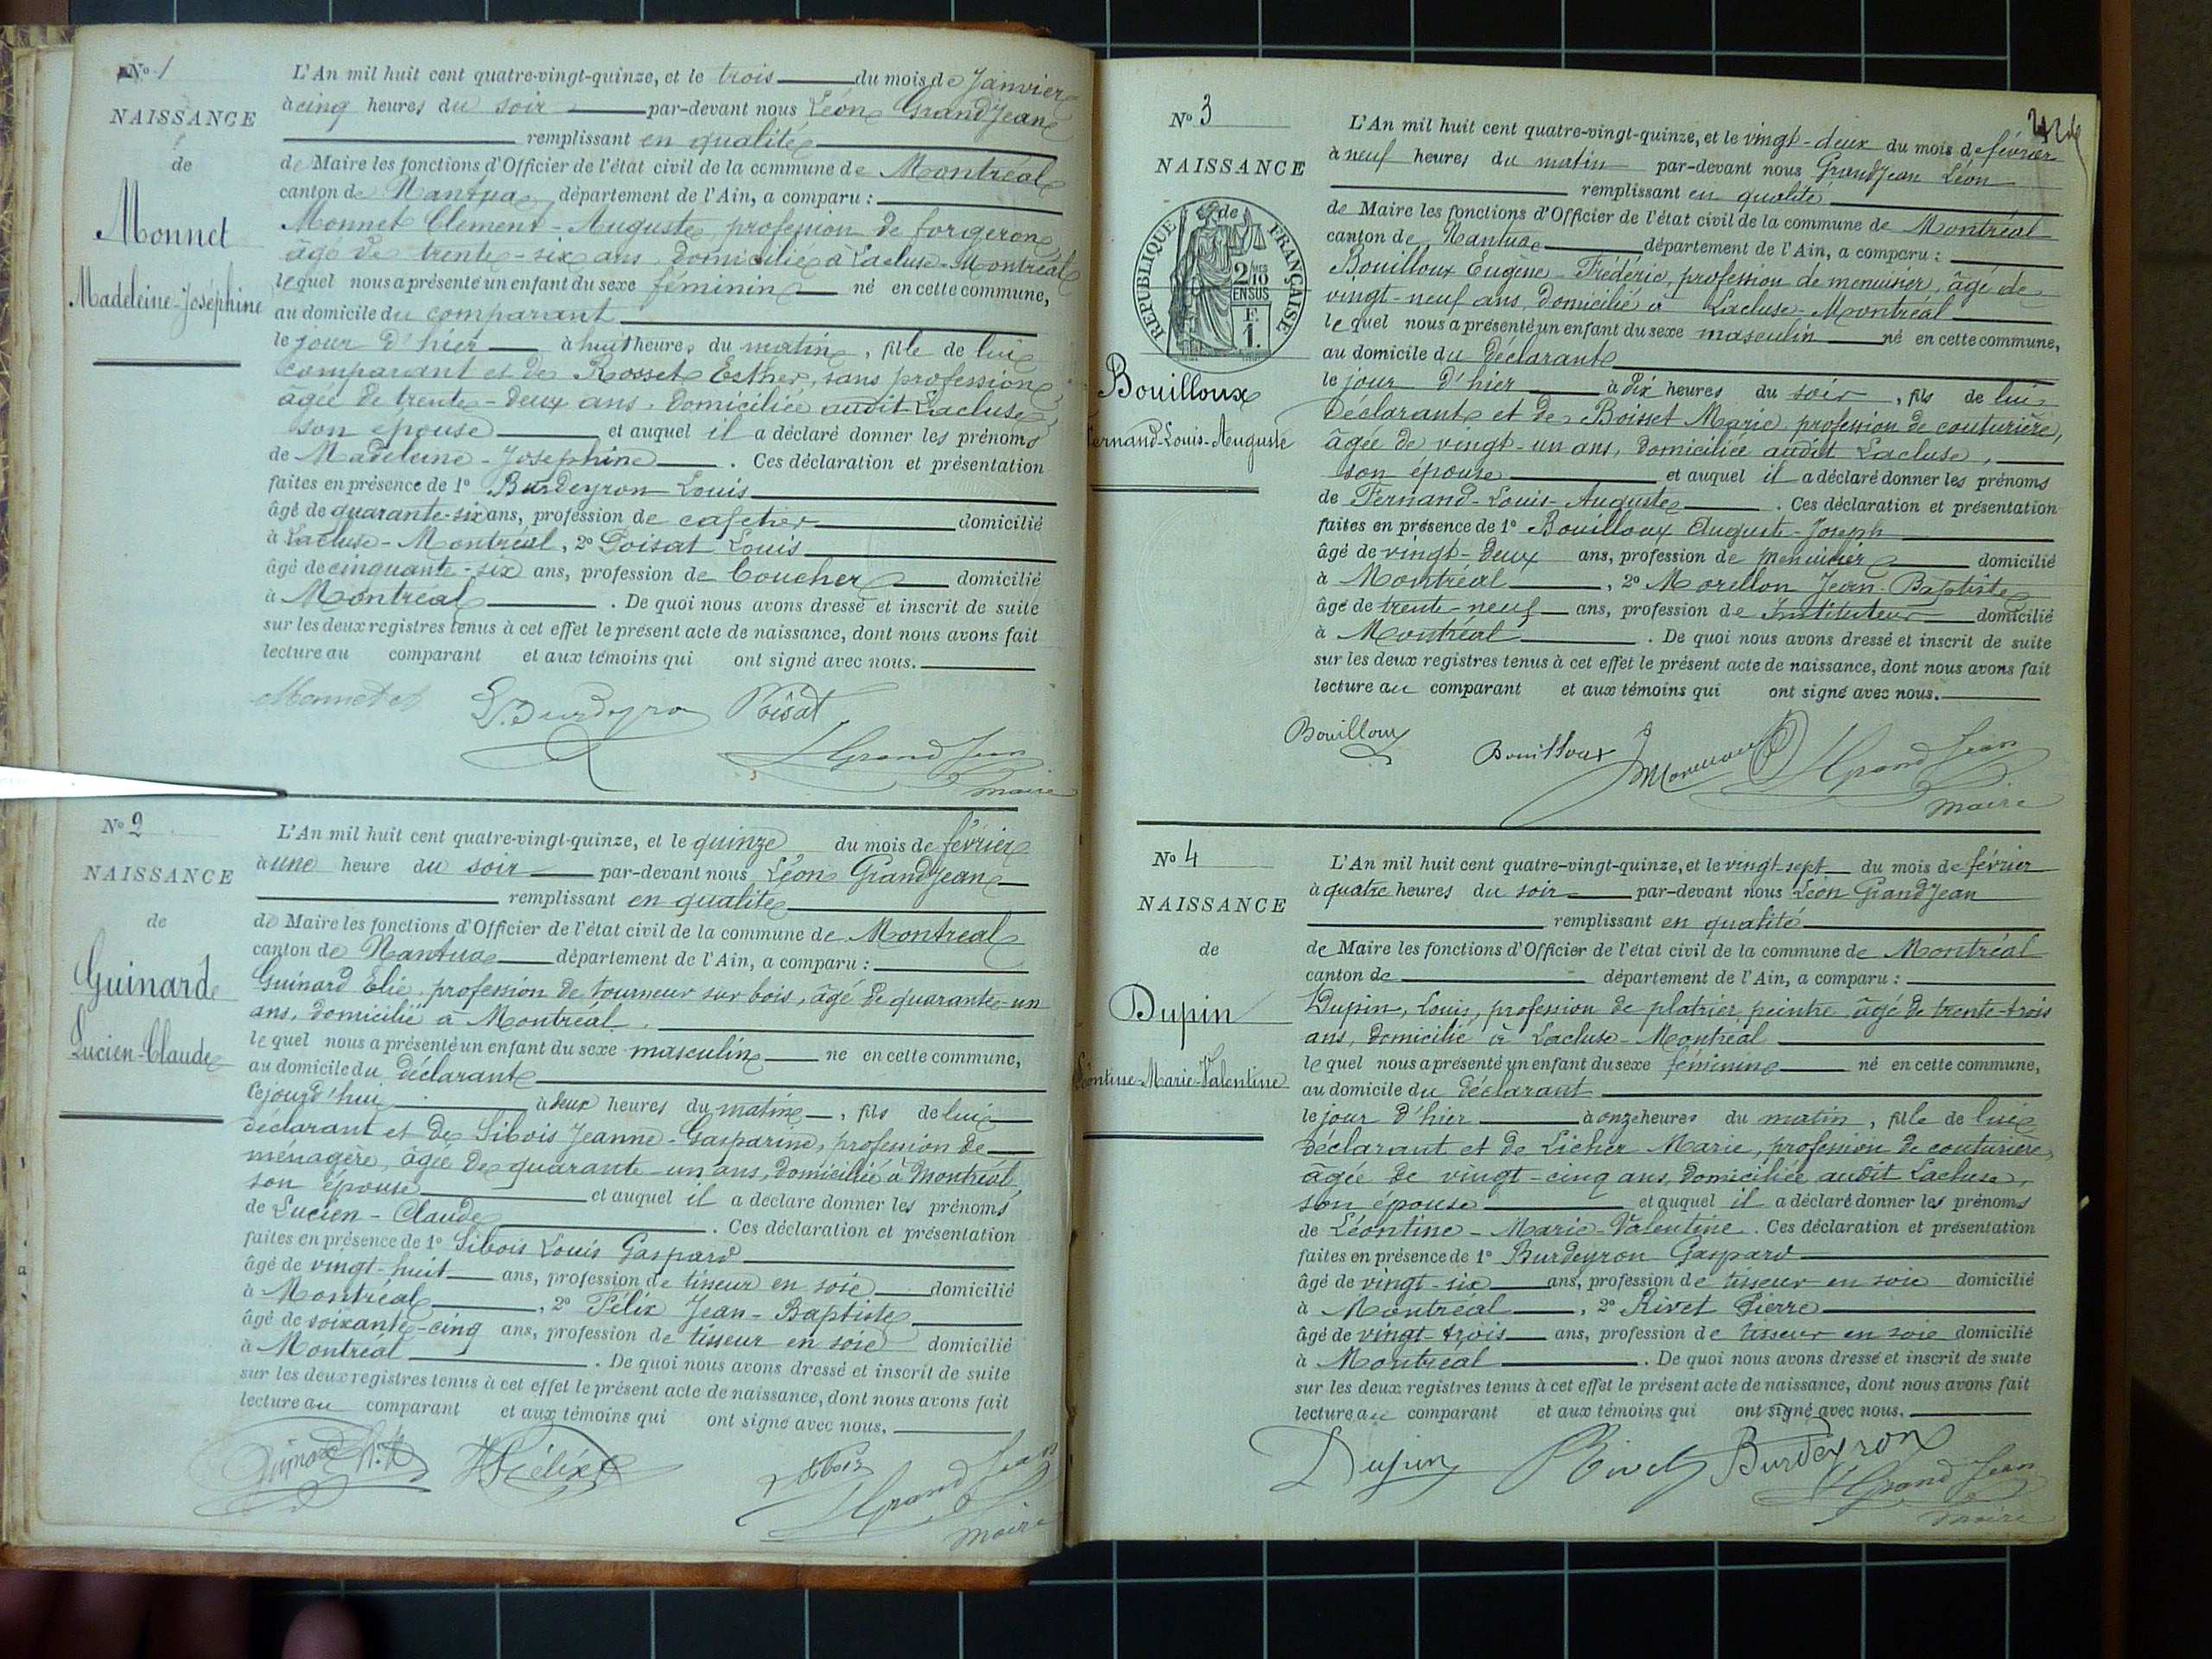 N° 1
NAISSANCE
de
Monnet
Madeleine-Joséphine
L'An mil huit cent quatre-vingt-quinze, et le trois du mois de Janvier
à cinq heures du soir par-devant nous Léon GrandJean
remplissant en qualité
de Maire les fonctions d'Officier de l'état civil de la commune de Montréal
canton de Nantua, département de l'Ain, a comparu :
Monnet Clément-Auguste, profession de forgeron,
âgé de trente-six ans, domicilié à Lacluse-Montréal
lequel nous a présenté un enfant du sexe féminin né en cette commune,
au domicile du comparant
le jour d'hier à huit heures du matin, fille de lui
comparant et de Rosset Esther, sans profession,
âgée de trente-deux ans, domiciliée audit Lacluse,
son épouse et auquel il a déclaré donner les prénoms
de Madeleine-Joséphine. Ces déclaration et présentation
faites en présence de 1° Burdeyron Louis
âgé de quarante-six ans, profession de cafetier domicilié
à Lacluse-Montréal, 2° Poisat Louis
âgé de cinquante-six ans, profession de boucher domicilié
à Montréal. De quoi nous avons dressé et inscrit de suite
sur les deux registres tenus à cet effet le présent acte de naissance, dont nous avons fait
lecture au comparant et aux témoins qui ont signé avec nous.
L. Burdeyron Poisat
L Grand Jean
maire
N° 2
NAISSANCE
de
Guinard
Lucien-Claude
L'An mil huit cent quatre-vingt-quinze, et le quinze du mois de février
à une heure du soir par-devant nous Léon GrandJean
remplissant en qualité
de Maire les fonctions d'Officier de l'état civil de la commune de Montréal
canton de Nantua département de l'Ain, a comparu :
Guinard Elie, profession de tourneur sur bois, âgé de quarante-un
ans, domicilié à Montréal.
lequel nous a présenté un enfant du sexe masculin né en cette commune,
au domicile du déclarant
le jourd'hui à deux heures du matin, fils de lui
déclarant et de Sibois Jeanne-Gasparine, profession de
ménagère, âgée de quarante-un ans, domiciliée à Montréal,
son épouse et auquel il a déclaré donner les prénoms
de Lucien-Claude. Ces déclaration et présentation
faites en présence de 1° Sibois Louis Gaspard
âgé de vingt-huit ans, profession de tisseur en soie domicilié
à Montréal, 2° Félix Jean-Baptiste
âgé de soixante-cinq ans, profession de tisseur en soie domicilié
à Montréal. De quoi nous avons dressé et inscrit de suite
sur les deux registres tenus à cet effet le présent acte de naissance, dont nous avons fait
lecture au comparant et aux témoins qui ont signé avec nous.
Félix Sibois
L Grand Jean
maire
N° 3
NAISSANCE
de
RÉPUBLIQUE FRANÇAISE
2/10 MES
EN SUS
F.
1.
Bouilloux
Fernand-Louis-Auguste
L'An mil huit cent quatre-vingt-quinze, et le vingt-deux du mois de février
à neuf heures du matin par-devant nous GrandJean Léon
remplissant en qualité
de Maire les fonctions d'Officier de l'état civil de la commune de Montréal
canton de Nantua département de l'Ain, a comparu :
Bouilloux Eugène-Frédéric, profession de menuisier, âgé de
vingt-neuf ans, domicilié à Lacluse-Montréal
lequel nous a présenté un enfant du sexe masculin né en cette commune,
au domicile du déclarant
le jour d'hier à dix heures du soir, fils de lui
déclarant et de Boisset Marie, profession de couturière,
âgée de vingt-un ans, domiciliée audit Lacluse,
son épouse et auquel il a déclaré donner les prénoms
de Fernand-Louis-Auguste. Ces déclaration et présentation
faites en présence de 1° Bouilloux Auguste-Joseph
âgé de vingt-deux ans, profession de menuisier domicilié
à Montréal, 2° Morellon Jean-Baptiste
âgé de trente-neuf ans, profession de Instituteur domicilié
à Montréal. De quoi nous avons dressé et inscrit de suite
sur les deux registres tenus à cet effet le présent acte de naissance, dont nous avons fait
lecture au comparant et aux témoins qui ont signé avec nous.
Bouilloux Bouilloux Morellon
L Grand Jean
maire
N° 4
NAISSANCE
de
Dupin
Léontine-Marie-Valentine
L'An mil huit cent quatre-vingt-quinze, et le vingt-sept du mois de février
à quatre heures du soir par-devant nous Léon GrandJean
remplissant en qualité
de Maire les fonctions d'Officier de l'état civil de la commune de Montréal
canton de département de l'Ain, a comparu :
Dupin, Louis, profession de platrier peintre âgé de trente-trois
ans, domicilié à Lacluse-Montréal
lequel nous a présenté un enfant du sexe féminin né en cette commune,
au domicile du déclarant
le jour d'hier à onze heures du matin, fille de lui
déclarant et de Licher Marie, profession de couturière,
âgée de vingt-cinq ans, domiciliée audit Lacluse,
son épouse et auquel il a déclaré donner les prénoms
de Léontine-Marie-Valentine. Ces déclaration et présentation
faites en présence de 1° Burdeyron Gaspard
âgé de vingt-six ans, profession de tisseur en soie domicilié
à Montréal, 2° Rivet Pierre
âgé de vingt-trois ans, profession de tisseur en soie domicilié
à Montréal. De quoi nous avons dressé et inscrit de suite
sur les deux registres tenus à cet effet le présent acte de naissance, dont nous avons fait
lecture au comparant et aux témoins qui ont signé avec nous.
Dupin Rivet Burdeyron
L Grand Jean
maire